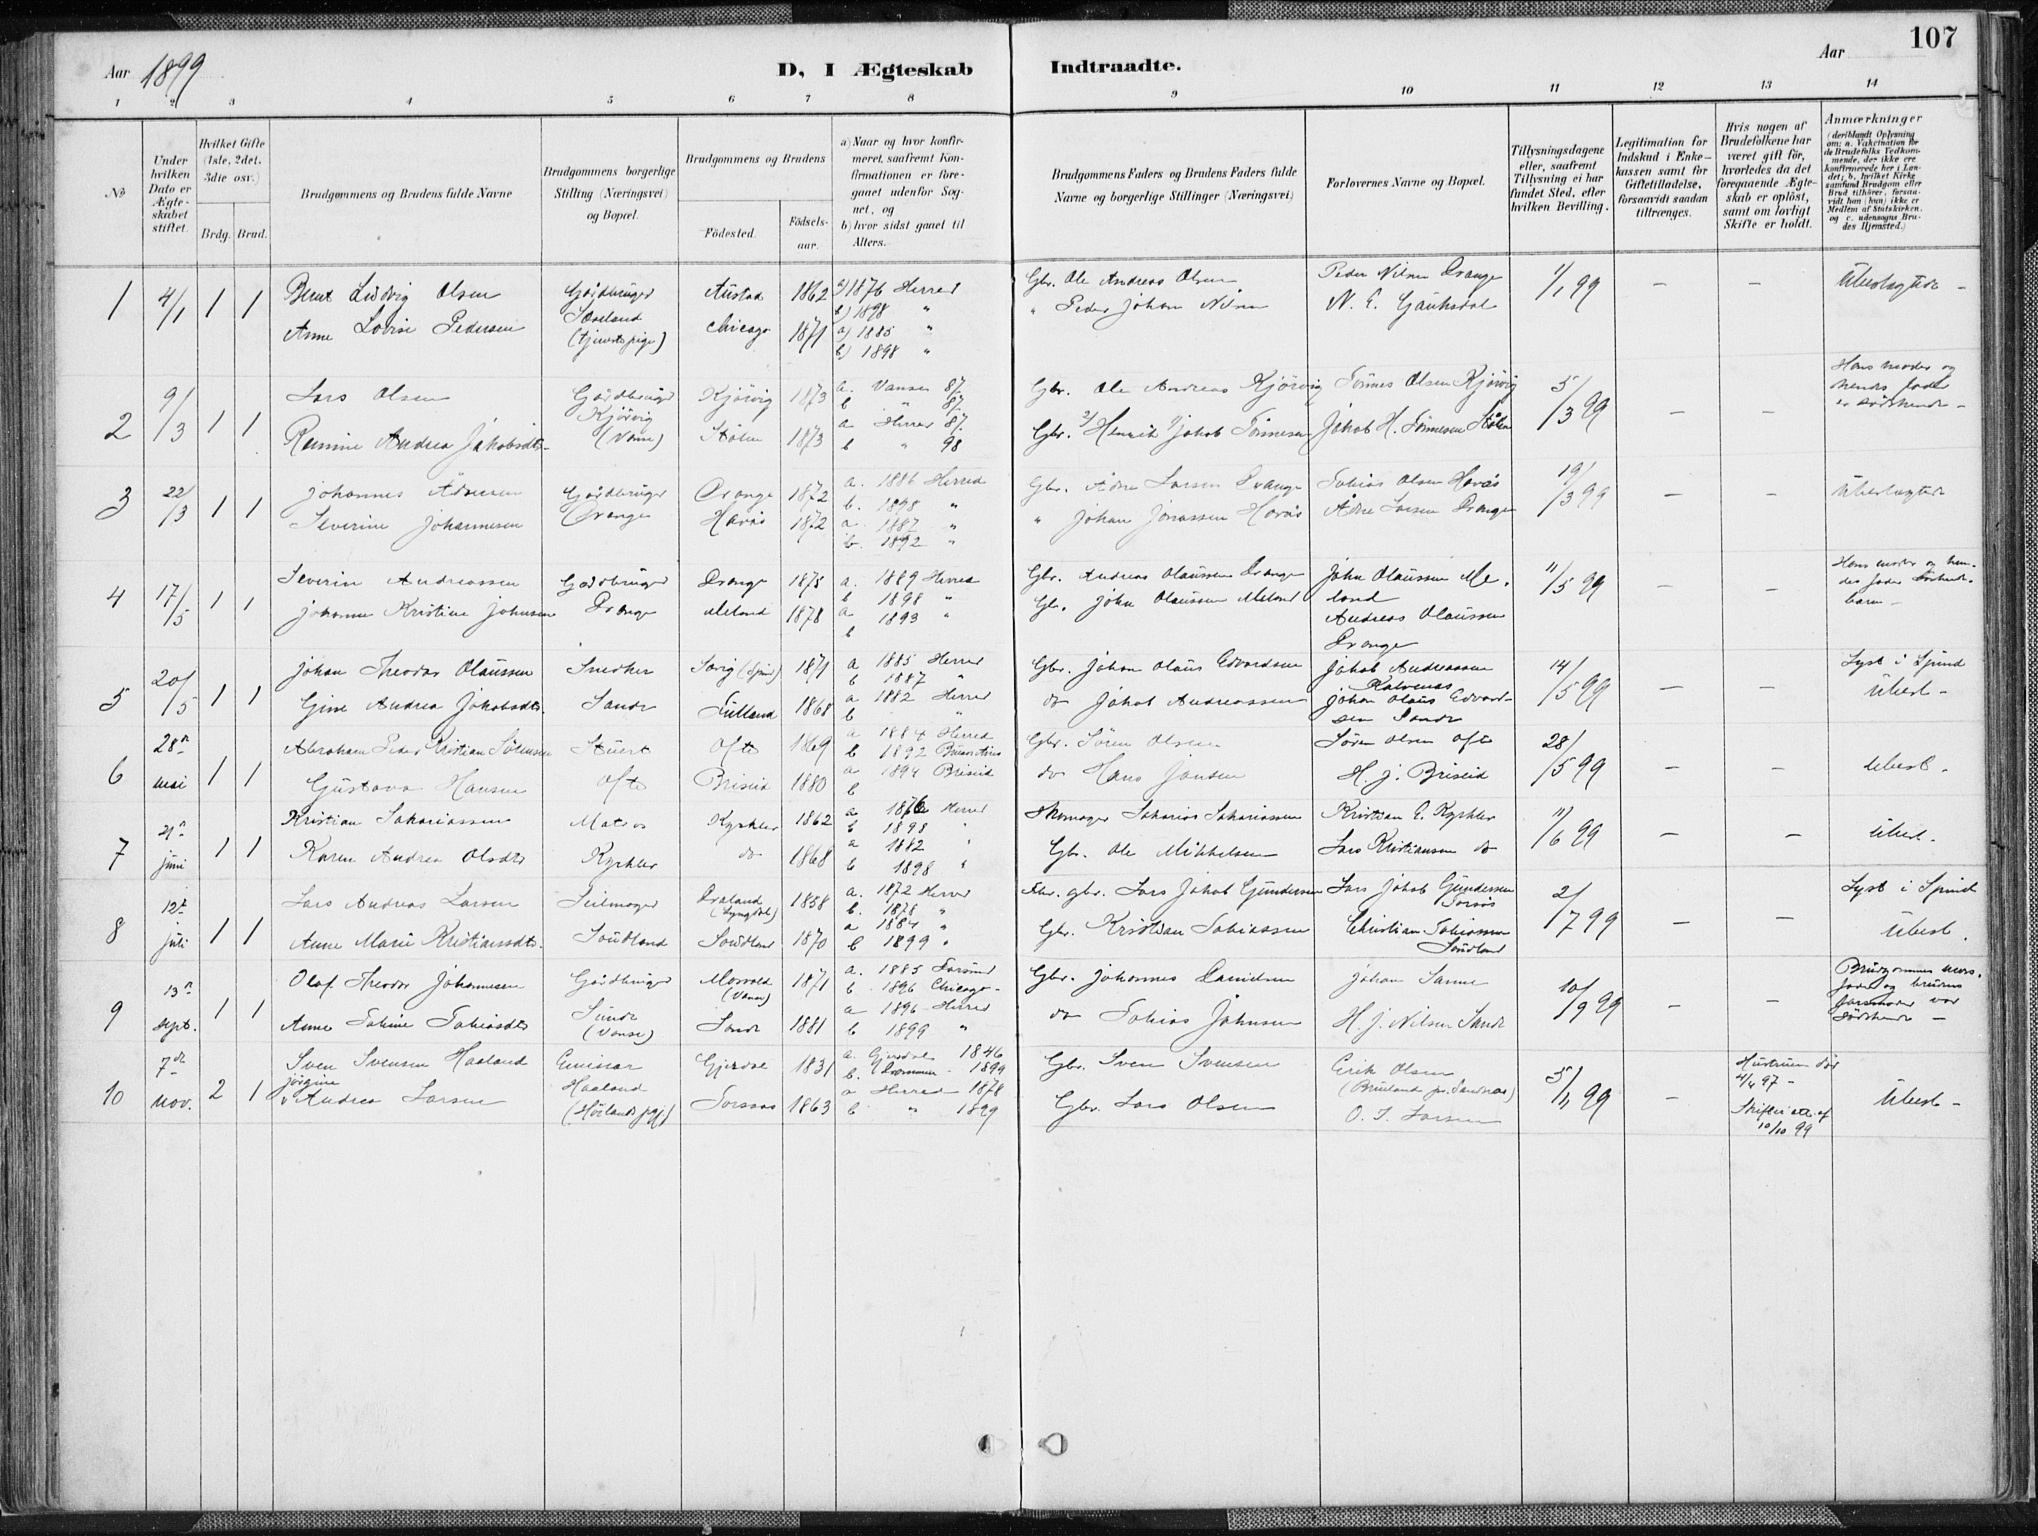 107
Aar 1899
D, I Ægteskab Indtraadte.
Aar
1 2 3 4 5 6 7 8 9 10 11 12 13 14
No
Under hvilken Dato er Ægteskabet stiftet.
Hvilket Gifte (1ste, 2det, 3die osv.)
Brdg. Brud.
Brudgommens og Brudens fulde Navne
Brudgommens borgerlige Stilling (Næringsvei) og Bopæl.
Brudgommens og Brudens
Födested. Födselsaar.
a) Naar og hvor konfirmeret, saafremt Konfirmationen er foregaaet udenfor Sognet, og
b) hvor sidst gaaet til Alters.
Brudgommens Faders og Brudens Faders fulde Navne og borgerlige Stillinger (Næringsvei)
Forlovernes Navne og Bopæl.
Tillysningsdagene eller, saafremt Tillysning ei har fundet Sted, efter hvilken Bevilling.
Legitimation for Indskud i Enkekassen samt for Giftetilladelse, forsaavidt saadan tiltrænges.
Hvis nogen af Brudefolkene har været gift för, hvorledes da det foregaaende Ægteskab er oplöst, samt om lovligt Skifte er holdt.
Anmærkninger (deriblandt Oplysning om: a. Vakcination for de Brudefolks Vedkommende, der ikke ere konfirmerede her i Landet; b. hvilket Kirkesamfund Brudgom eller Brud tilhörer, forsaavidt han (hun) ikke er Medlem af Statskirken, og c. udensogns Brudes Hjemsted.)
1 4/1 1 1 Bernt Ludvig Olsen Gårdbruger Austad 1862 a) 1876 Herred Gbr. Ole Andreas Olsen Peder Nilsen Drange 1/1 99 — —
b) 1898 "
Anne Lovise Pedersen (tjenestepige) Chicago 1871 a) 1885 " " Peder Johan Nilsen
b) 1898 "
2 9/3 1 1 Lars Olsen Gårdbruger Kjörvig Kjörvig 1873 a. Vanse 87. Gbr. Ole Andreas Kjörvig Tönnes Olsen Kjörvig 5/3 99 — — Hans moder og hendes fader er södskende —
b " 87.
Andrea Jakobsdtr. (Vanse) Stölen 1873 a Herred 87. Gbr. Henrik Jakob Tönnesen Jakob H. Tönnesen Stölen
b " 98
3 22/3 1 1 Johannes Ådnesen Gårdbruger Drange Drange 1872 a. 1886 Herred Gbr. Ådne Larsen Drange Tobias Olsen Havås 19/3 99 — —
b. 1898 "
Severine Johannesen Havås 1872 a. 1887 " " Johan Jonassen Havås Ådne Larsen Drange
b. 1892 "
4 17/5 1 1 Severin Andreassen Gårdbruger Drange Drange 1875 a. 1889 Herred Gbr. Andreas Olaussen Drange John Olaussen Meland 11/5 99 — — Hans moder og hendes fader
b 1898 "
Johanne Kristine Johnsen Meland 1878 a 1893 " Gbr. John Olaussen Meland Andreas Olaussen Drange
b
5 20/5 1 1 Johan Theodor Olaussen Snedker Sande 1871 a 1885 Herred Gbr. Johan Olaus Edvardsen Jakob Andreassen 14/5 99 — — Lyst i Spind
b 1887 "
Gine Andrea Jakobsdtr. 1868 a 1882 Herred do Jakob Andreassen Johan Olaus Edvardsen Sande
b "
6 28n mai 1 1 Abraham Peder Kristian Sörensen Stuert Ofte Ofte 1869 a 1884 Herred Gbr. Sören Olsen Sören Olsen Ofte 28/5 99 — —
b 1892 Buenos Aires
Gustava Hansen Briseid 1880 a 1894 Briseid do Hans Jansen H. J. Briseid
b
7 21n juni 1 1 Kristian Sakariassen Matros 1862 a 1876 Herred Skomager Sakarias Sakariassen Kristian E. 11/6 99 — —
b 1898 "
Karen Andrea Olsdtr do 1868 a 1882 " Gbr. Ole Mikkelsen Lars Kristiansen do
b 1898 "
8 12t juli 1 1 Lars Andreas Larsen Seilmager (Lyngdal) 1858 a. 1872 Herred Lars Jakob Gundersen Lars Jakob Gundersen 2/7 99 — — Lyst i Spind
b. 1878 "
Anne Marie Kristiansdtr. 1870 a 1884 " Gbr. Kristian Tobiassen Christian Tobiassen
b 1899 "
9 13n sept. 1 1 Olaf Theodor Johannesen Gårdbruger Sunde (Vanse) Mosvold (Vanse) 1871 a. 1885 Farsund Gbr. Johannes Danielsen Johan Sanne 10/9 99 — — Brudgommens morfader og brudens farsmoder var södskende —
b. 1896 Chicago -
Anne Tobine Tobiasdtr Sande 1881 a 1896 - Herred do Tobias Johnsen H. J. Nilsen Sande
b 1899 "
10 7de nov. 2 1 Sven Svensen Haaland Emissær Haaland Gjesdal 1831 a. Gjesdal 1846 Gbr. Sven Svensen Erik Olsen 5/11 99 — Hustruen död 4/4 97 -
b. Drammen 1899
Jörgine Andrea Larsen 1863 a Herred 1878 Gbr. Lars Olsen O. T. Larsen 10/10 99
b " 1899